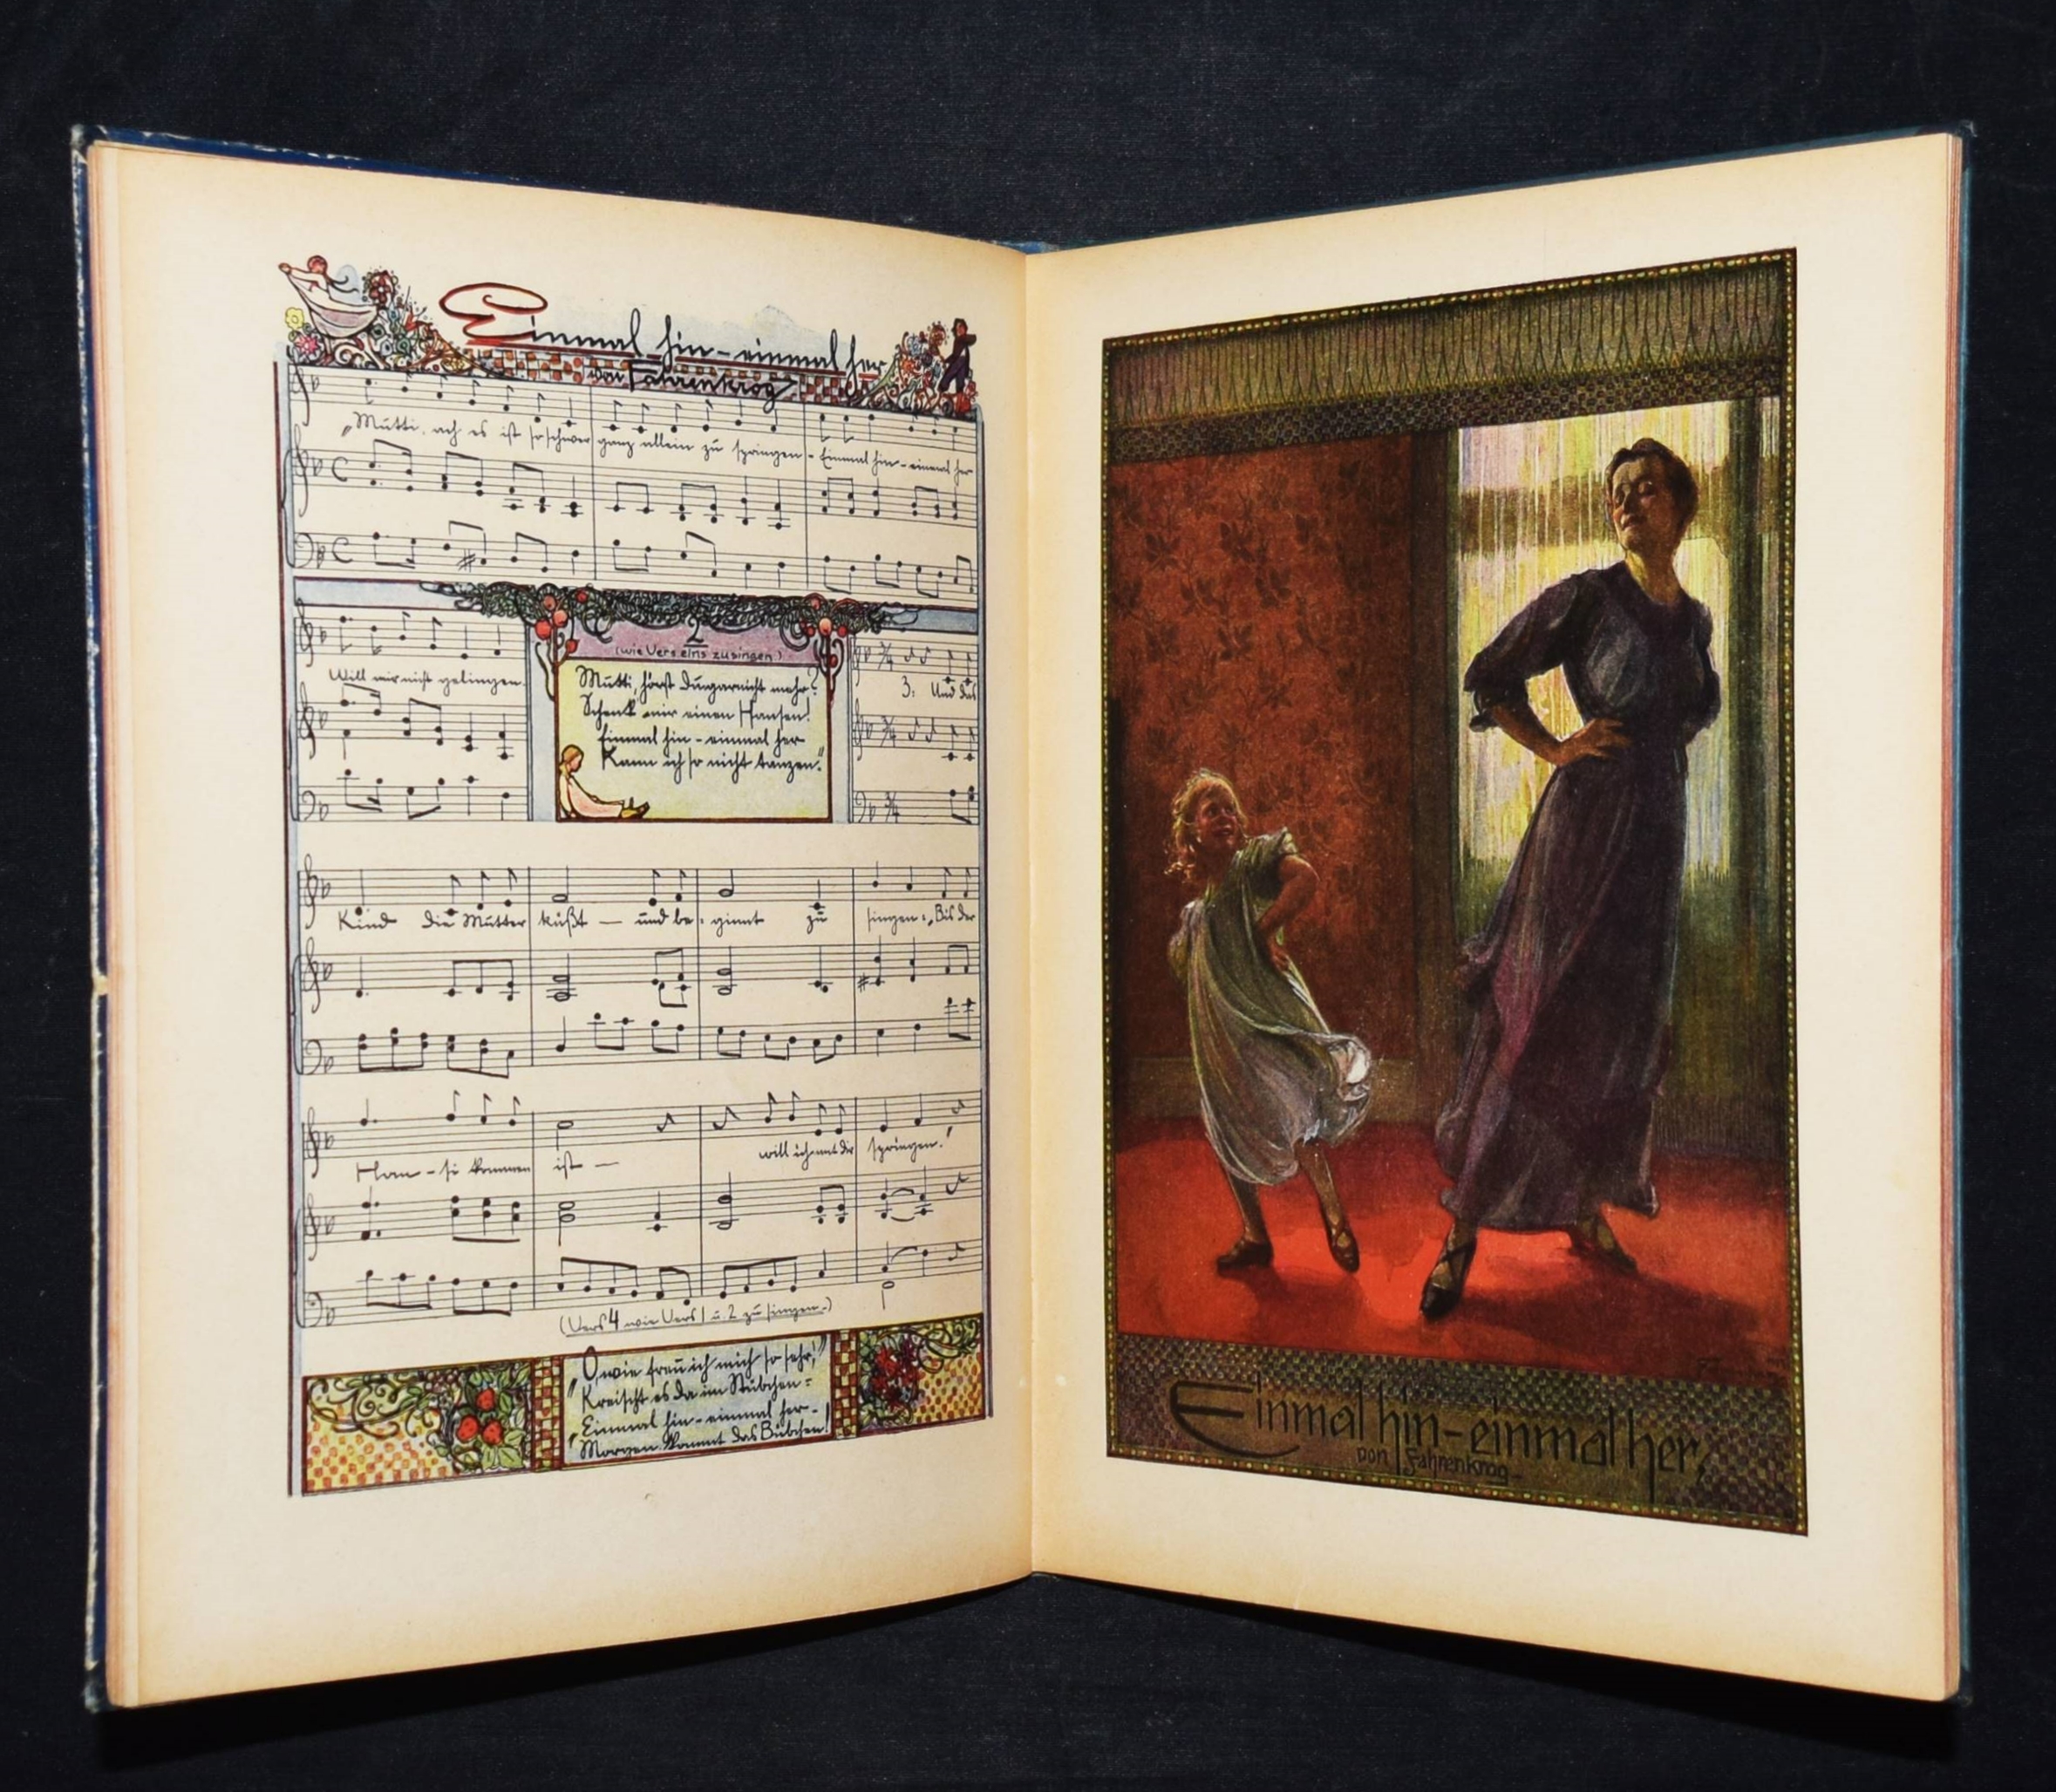 Einmal hin - einmal her
von Fahrenkrog
„Mutti, ach es ist so schwer ganz allein zu springen - Einmal hin - einmal her
Will mir nicht gelingen.
2
(wie Vers eins zu singen)
Mutti, hörst Du gar nicht mehr?
Schenk mir einen Hansen!
Einmal hin - einmal her
Kann ich so nicht tanzen."
3. Und das
Kind die Mutter küßt — und be- ginnt zu singen: „Bis der
Han - si kommen ist — will ich mit Dir springen."
(Vers 4 wie Vers 1 u. 2 zu singen.)
„O, wie freu ich mich so sehr,"
Kreischt es da im Stübchen =
„Einmal hin - einmal her -
Morgen kommt das Bübchen!
Einmal hin - einmal her,
von Fahrenkrog -